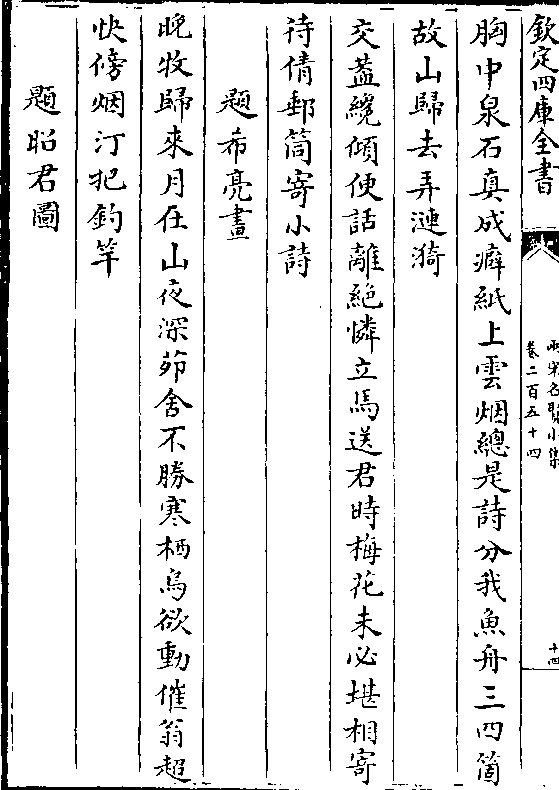 欽定四庫全書
兩宋名賢小集
卷二百五十四
十四
胸中泉石真成癖紙上雲烟總是詩分我魚舟三四箇
故山歸去弄漣漪
交葢纔傾便話離絶憐立馬送君時梅花未必堪相寄
待倩郵筒寄小詩
題希亮畫
晚牧歸來月在山夜深茆舍不勝寒栖烏欲動催翁起
快傍烟汀把釣竿
題昭君圖